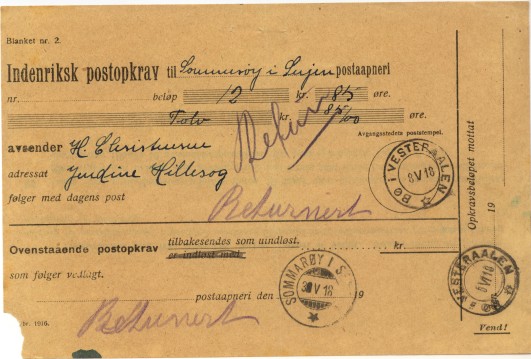 Blanket nr. 2.
Indenriksk postopkrav til Sommarøy i Senjen postaapneri
nr. beløp 12 kr. 85 øre.
Tolv 85/100
Retur
Avgangsstedets poststempel.
avsender H. Christensen
adressat Hillesøg
følger med dagens post
BØ I VESTERAALEN
8 V 18
Returnert
Ovenstaaende postopkrav tilbakesendes som uindløst.
er indløst med kr.
som følger vedlagt.
postaapneri den 19
SOMMARØY I S.
30 V 18
Returnert
nr. 1916.
Opkrævbeløpet mottat
19
VESTERAALEN
BØ I
VI 18
Vend!